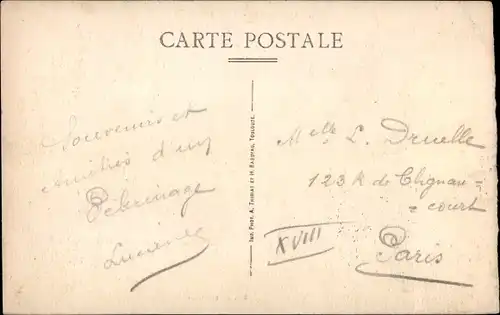 CARTE POSTALE
Souvenirs et
Amitiés d'un
Pélerinage
Lucienne
IMP. PHOT. A. THOMAS ET H. BASUYAU, TOULOUSE.
Melle L. Druelle
123 R de Clignan=
=court
XVIII
Paris